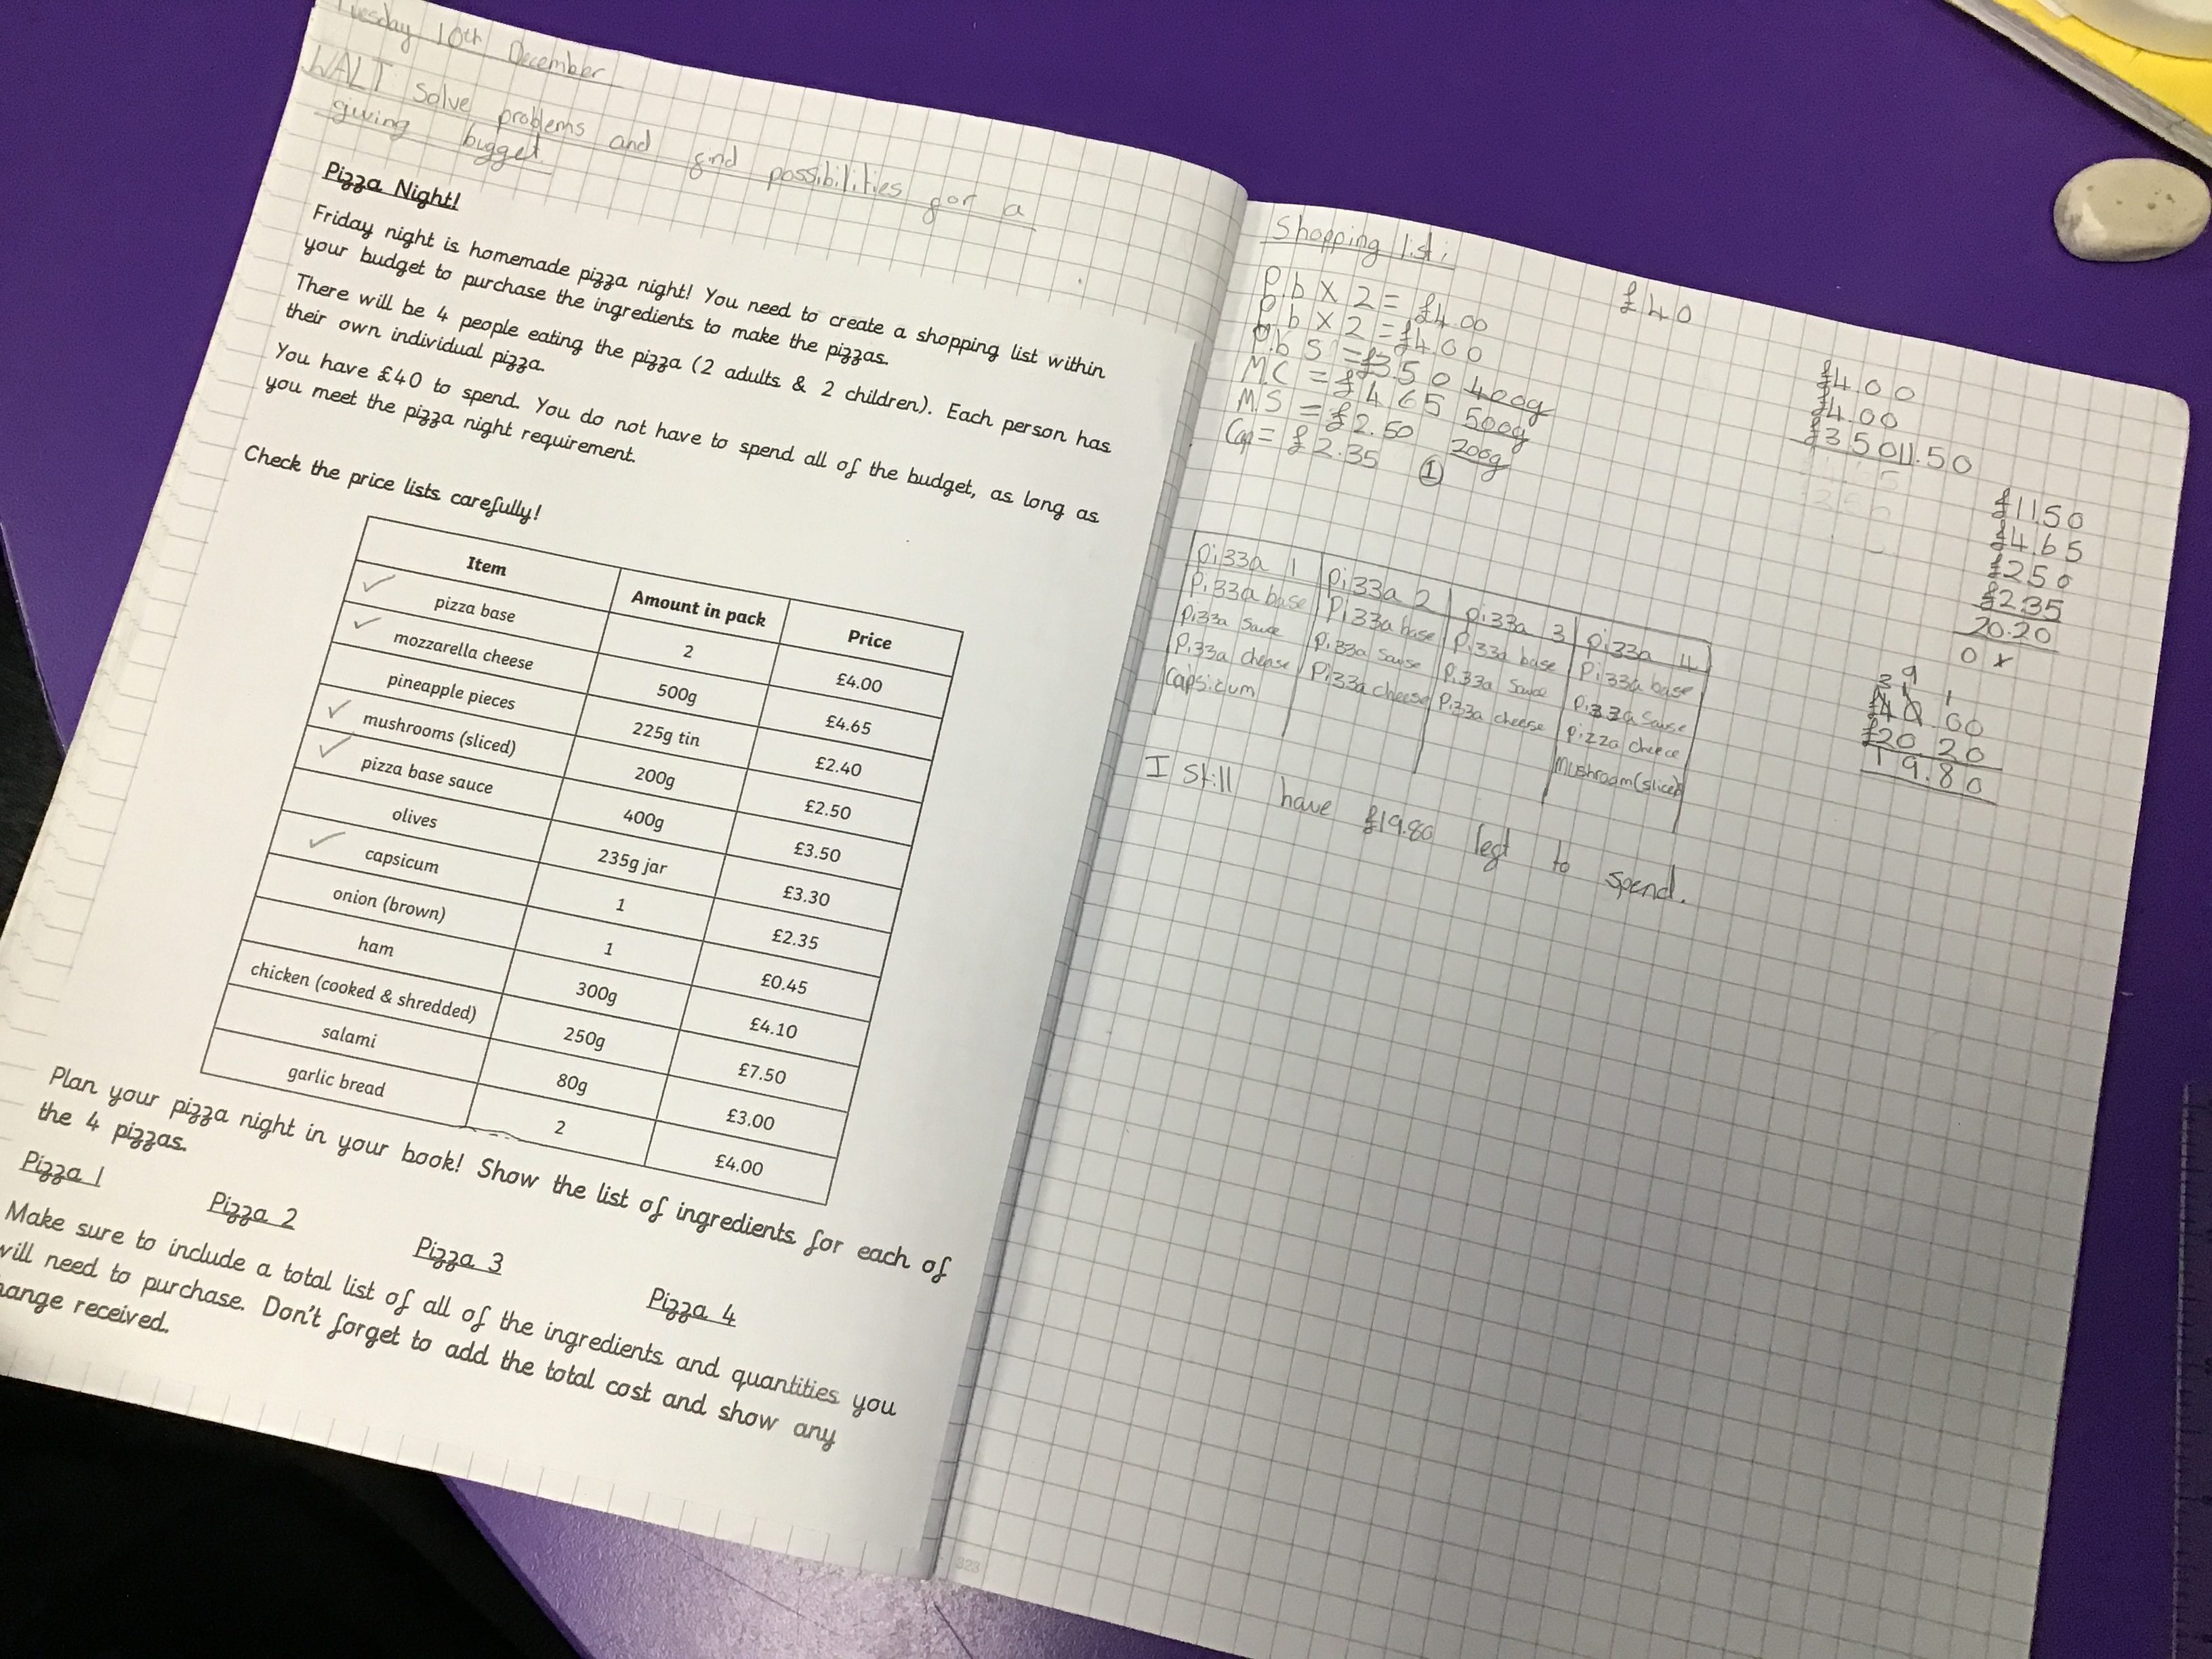 Tuesday 10th December
WALT: Solve problems and find possibilities for a
giving bugget
Pizza Night!
Friday night is homemade pizza night! You need to create a shopping list within
your budget to purchase the ingredients to make the pizzas.
There will be 4 people eating the pizza (2 adults & 2 children). Each person has
their own individual pizza.
You have £40 to spend. You do not have to spend all of the budget, as long as
you meet the pizza night requirement.
Check the price lists carefully!
Item Amount in pack Price
pizza base 2 £4.00
mozzarella cheese 500g £4.65
pineapple pieces 225g tin £2.40
mushrooms (sliced) 200g £2.50
pizza base sauce 400g £3.50
olives 235g jar £3.30
capsicum 1 £2.35
onion (brown) 1 £0.45
ham 300g £4.10
chicken (cooked & shredded) 250g £7.50
salami 80g £3.00
garlic bread 2 £4.00
Plan your pizza night in your book! Show the list of ingredients for each of
the 4 pizzas.
Pizza 1 Pizza 2 Pizza 3 Pizza 4
Make sure to include a total list of all of the ingredients and quantities you
will need to purchase. Don't forget to add the total cost and show any
hange received.
Shopping list:
£40
P.b X 2 = £4.00
P.b X 2 = £4.00
P.b S = £3.50 400g
M.C = £4.65 500g
M.S = £2.50 200g
Cap = £2.35 1
£4.00
£4.00
£3.50 11.50
£11.50
£4.65
£2.50
£2.35
20.20
3 9 1
£40.00
£20.20
19.80
pizza 1 pizza 2 pizza 3 pizza 4
Pizza base Pizza base Pizza base Pizza base
Pizza sauce Pizza sause Pizza sauce Pizza sause
Pizza cheese Pizza cheese Pizza cheese pizza cheece
Capsicum Mushroom (sliced
I still have £19.80 left to spend.
323